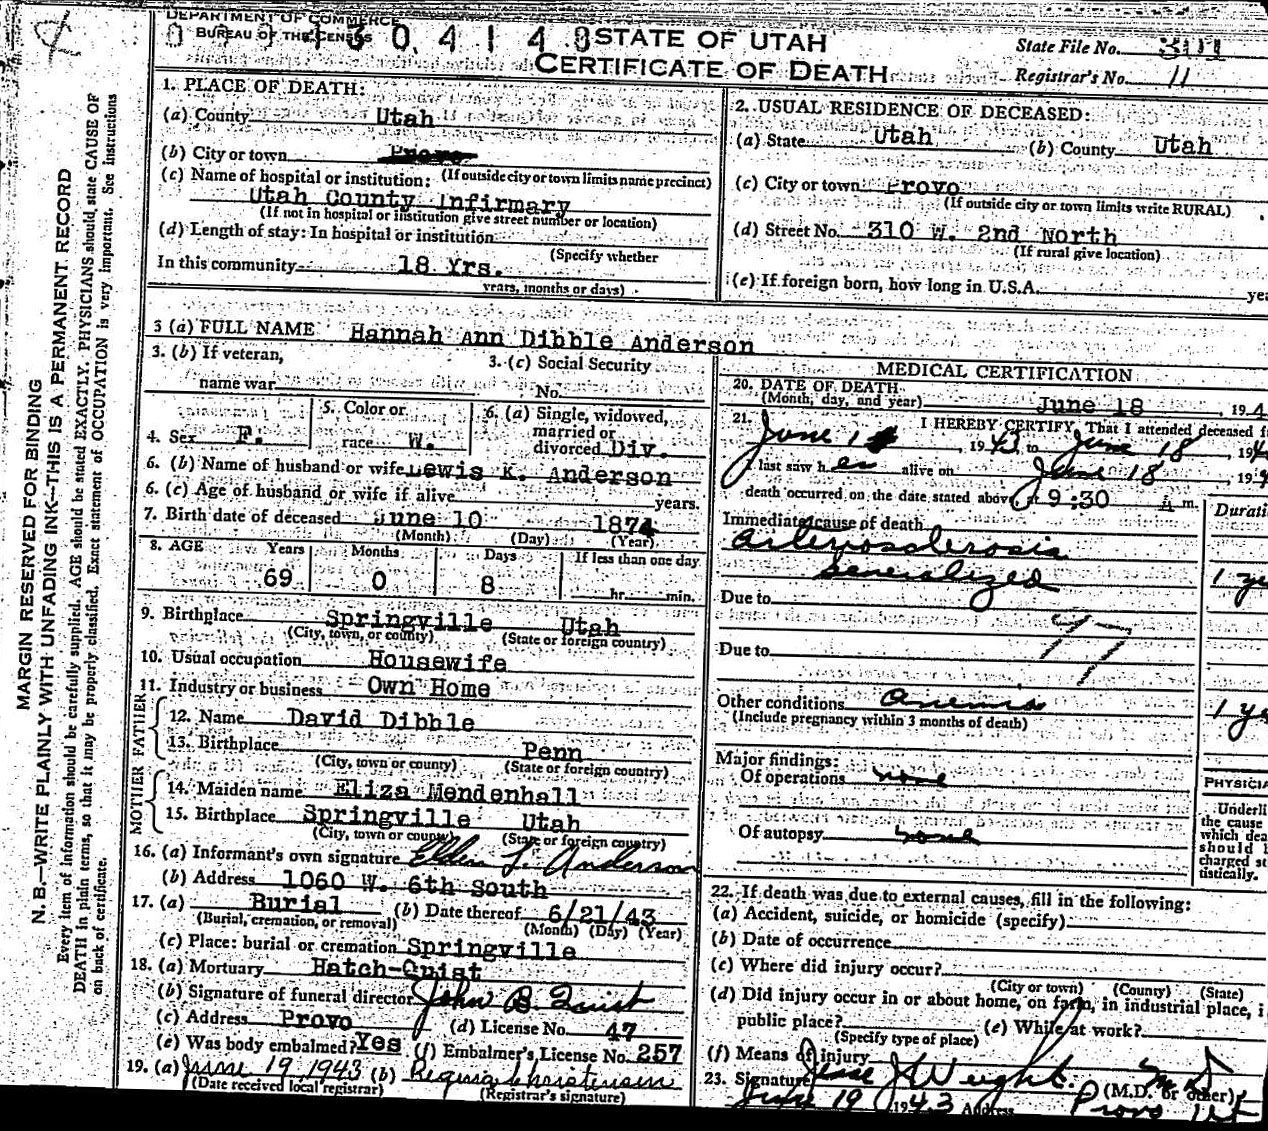 DEPARTMENT OF COMMERCE
BUREAU OF THE CENSUS
STATE OF UTAH
CERTIFICATE OF DEATH
State File No. 301
Registrar's No. 11
MARGIN RESERVED FOR BINDING
N. B.—WRITE PLAINLY WITH UNFADING INK—THIS IS A PERMANENT RECORD
Every item of information should be carefully supplied. AGE should be stated EXACTLY. PHYSICIANS should state CAUSE OF
DEATH in plain terms, so that it may be properly classified. Exact statement of OCCUPATION is very important. See instructions
on back of certificate.
1. PLACE OF DEATH:
(a) County Utah
(b) City or town Provo
(If outside city or town limits name precinct)
(c) Name of hospital or institution:
Utah County Infirmary
(If not in hospital or institution give street number or location)
(d) Length of stay: In hospital or institution
(Specify whether
In this community 18 Yrs.
years, months or days)
2. USUAL RESIDENCE OF DECEASED:
(a) State Utah (b) County Utah
(c) City or town Provo
(If outside city or town limits write RURAL)
(d) Street No. 310 W. 2nd North
(If rural give location)
(e) If foreign born, how long in U.S.A.
3 (a) FULL NAME Hannah Ann Dibble Anderson
3. (b) If veteran,
name war
3. (c) Social Security
No.
4. Sex F.
5. Color or
race W.
6. (a) Single, widowed,
married or
divorced Div.
6. (b) Name of husband or wife Lewis K. Anderson
6. (c) Age of husband or wife if alive years.
7. Birth date of deceased June 10 1874
(Month) (Day) (Year)
8. AGE Years Months Days If less than one day
69 0 8 hr. min.
9. Birthplace Springville Utah
(City, town, or county) (State or foreign country)
10. Usual occupation Housewife
11. Industry or business Own Home
FATHER
12. Name David Dibble
13. Birthplace Penn
(City, town or county) (State or foreign country)
MOTHER
14. Maiden name Eliza Mendenhall
15. Birthplace Springville Utah
(City, town or county) (State or foreign country)
16. (a) Informant's own signature Elden L. Anderson
(b) Address 1060 W. 6th South
17. (a) Burial (b) Date thereof 6/21/43
(Burial, cremation, or removal) (Month) (Day) (Year)
(c) Place: burial or cremation Springville
18. (a) Mortuary Hatch-Quist
(b) Signature of funeral director John B. Quist
(c) Address Provo (d) License No. 47
(e) Was body embalmed? Yes (f) Embalmer's License No. 257
19. (a) June 19, 1943 (b) Regina Christensen
(Date received local registrar) (Registrar's signature)
MEDICAL CERTIFICATION
20. DATE OF DEATH
(Month, day, and year) June 18, 194
21. I HEREBY CERTIFY, That I attended deceased
June 1, 1943, to June 18, 194
I last saw her alive on June 18, 19
death occurred on the date stated above, at 9:30 A m.
Immediate cause of death
Arteriosclerosis
Generalized 1
Due to
Due to
97
Other conditions Anemia 1
(Include pregnancy within 3 months of death)
Major findings:
Of operations none
Of autopsy none
Underli
the cause
which dea
should b
charged st
tistically.
22. If death was due to external causes, fill in the following:
(a) Accident, suicide, or homicide (specify)
(b) Date of occurrence
(c) Where did injury occur?
(City or town) (County) (State)
(d) Did injury occur in or about home, on farm, in industrial place, i
public place? (e) While at work?
(Specify type of place)
(f) Means of injury
23. Signature Jesse J. Weight. M D
(M.D. or other)
June 19 1943 Address Provo Ut